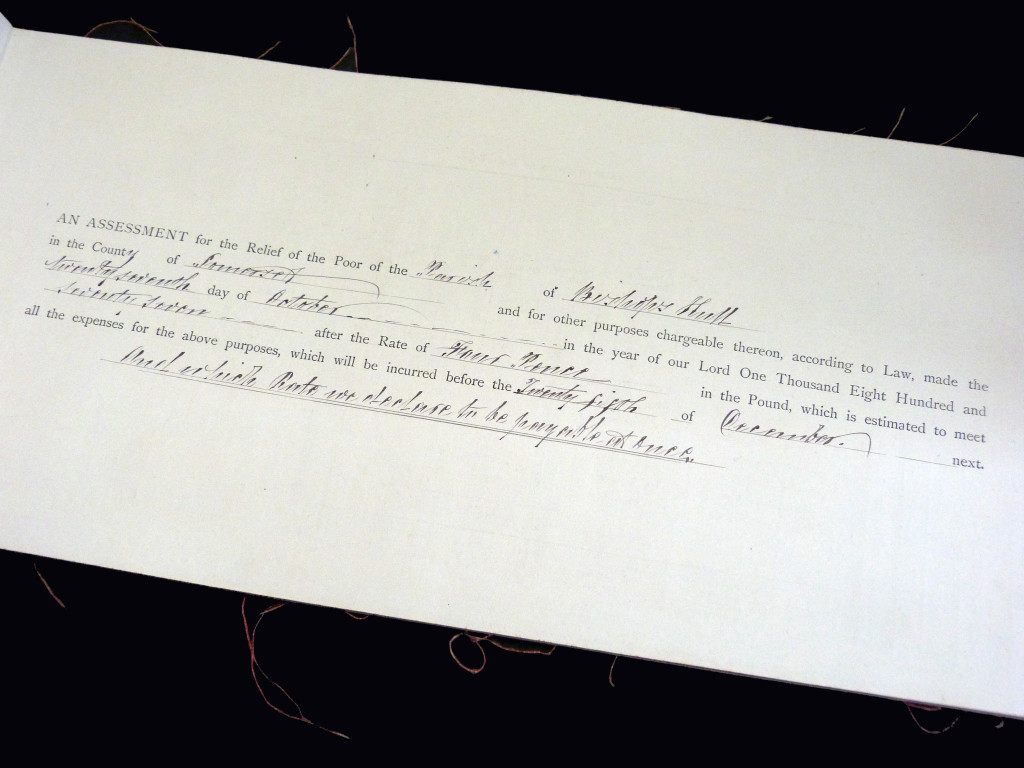 AN ASSESSMENT for the Relief of the Poor of the Parish of Bishops Hull
in the County of Somerset and for other purposes chargeable thereon, according to Law, made the
twenty seventh day of October in the year of our Lord One Thousand Eight Hundred and
seventy seven after the Rate of Four Pence in the Pound, which is estimated to meet
all the expenses for the above purposes, which will be incurred before the Twenty fifth of December. next.
And which Rate we declare to be payable at once.